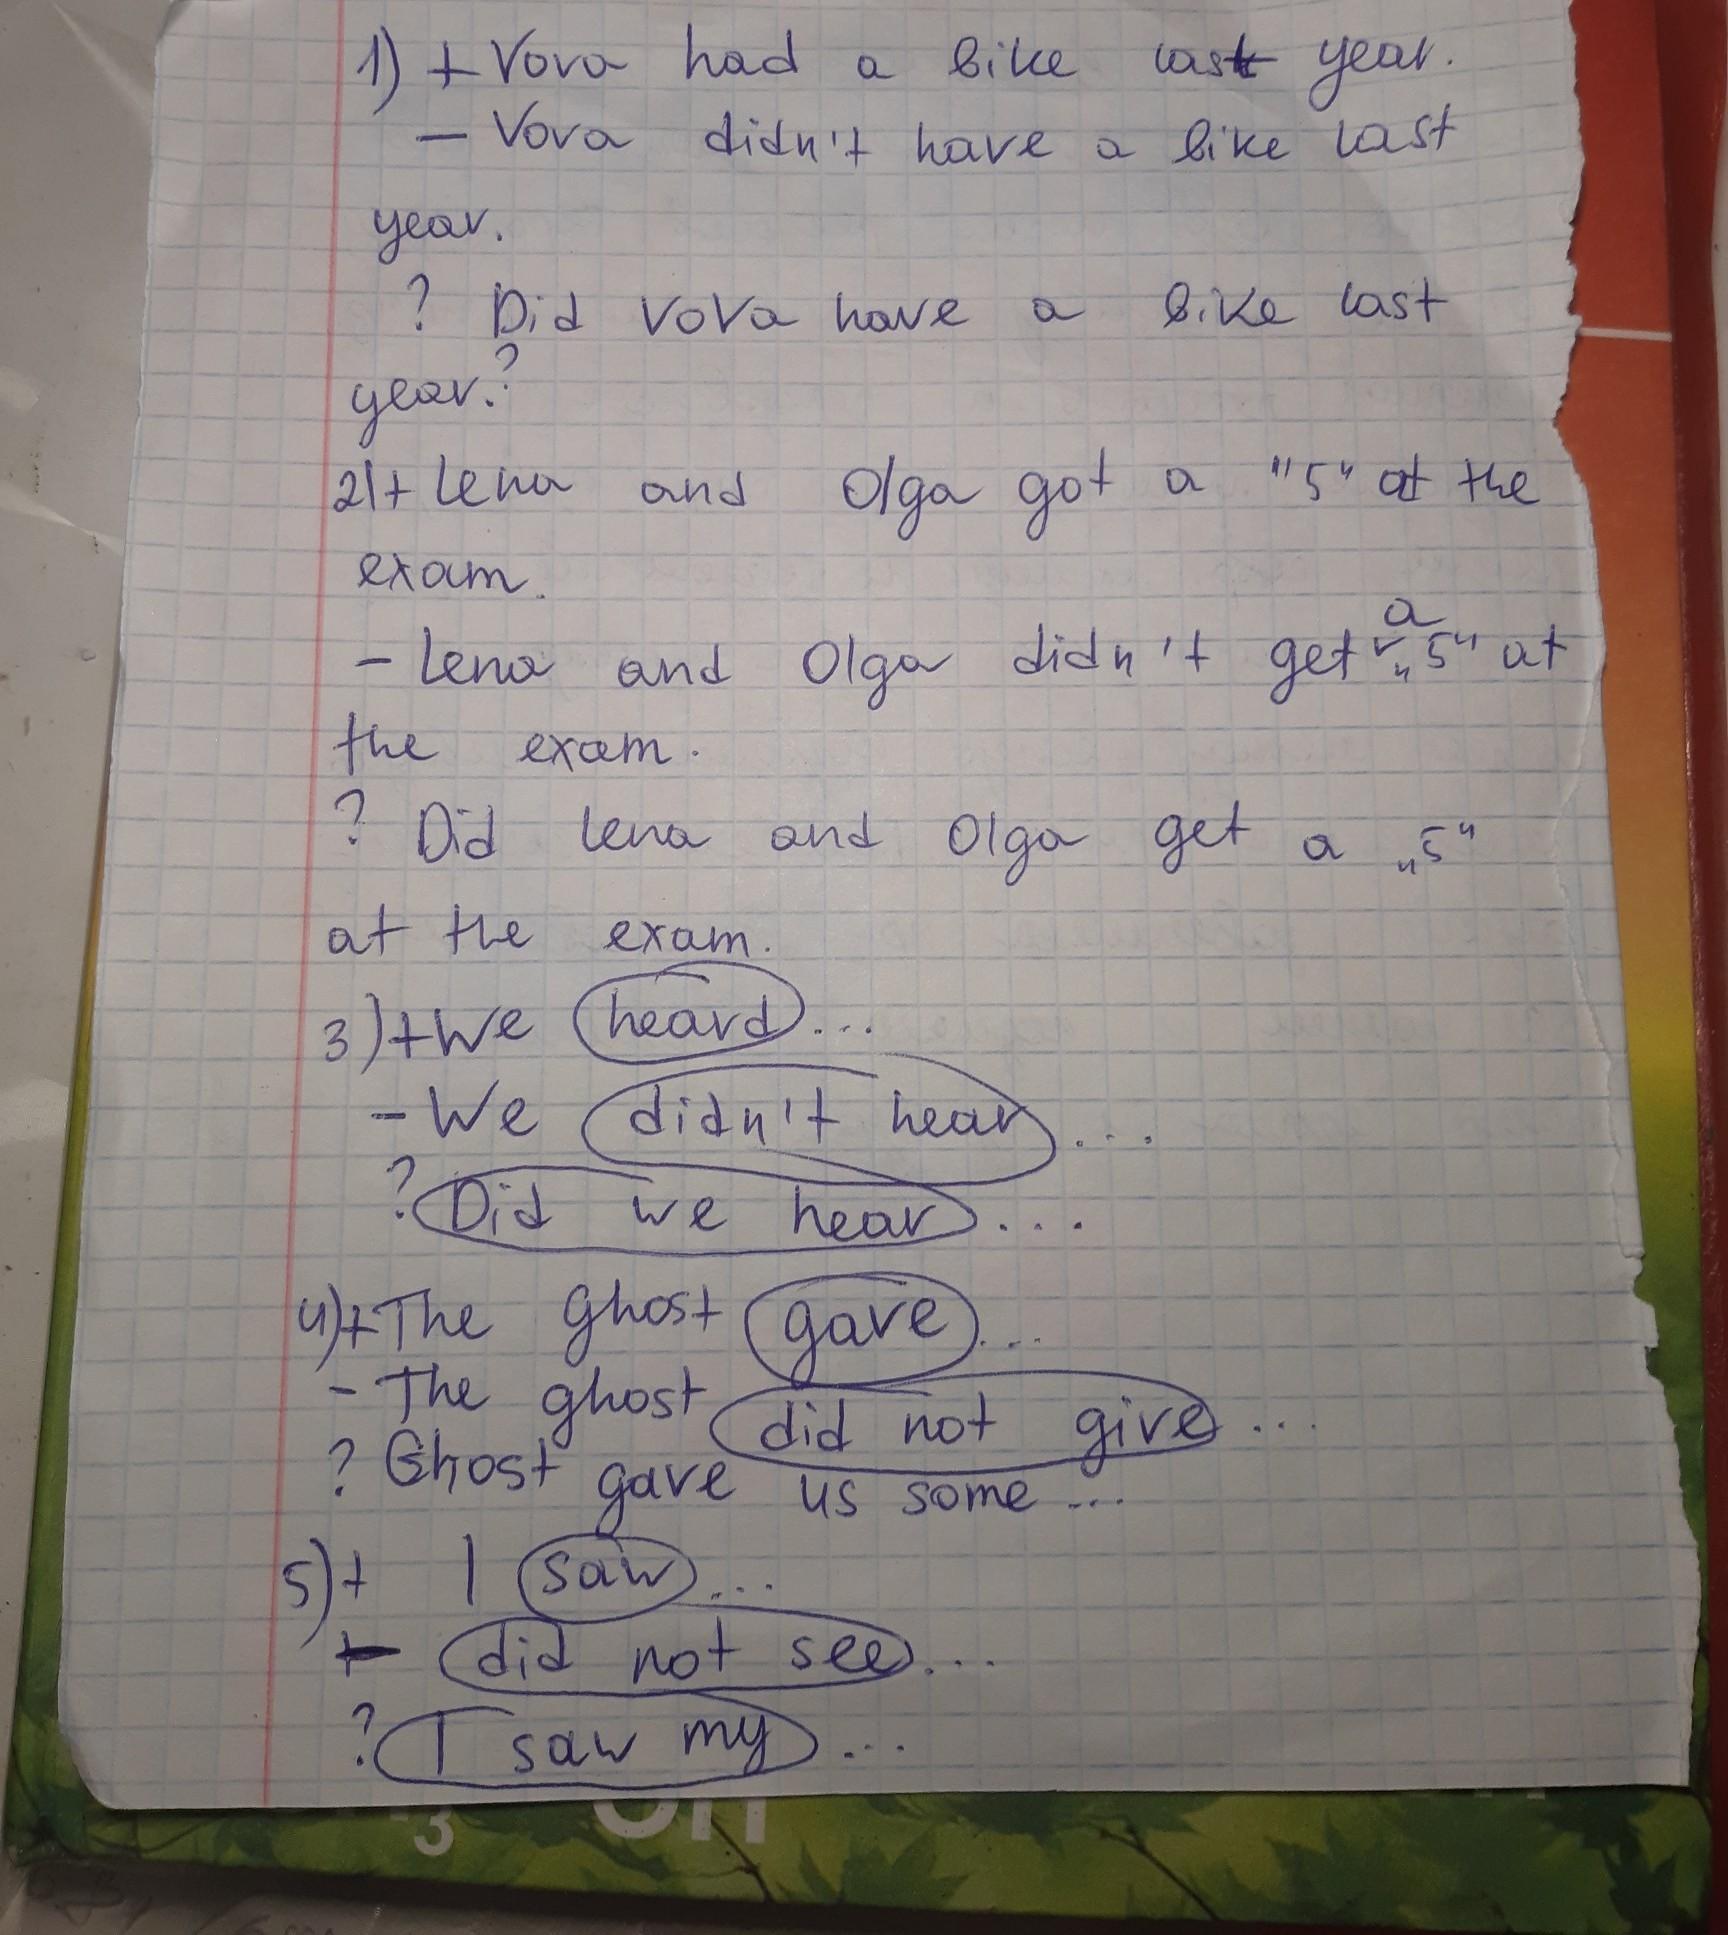 1) + Vova had a bike last year.
- Vova didn't have a bike last
year.
? Did Vova have a bike last
year.?
2)+ Lena and Olga got a "5" at the
exam.
a
- Lena and Olga didn't get „5" at
the exam.
? Did Lena and Olga get a „5"
at the exam.
3)+We heard...
- We didn't hear...
? Did we hear...
4)+The ghost gave...
- The ghost did not give...
? Ghost gave us some...
5)+ I saw...
- did not see...
? I saw my...
3